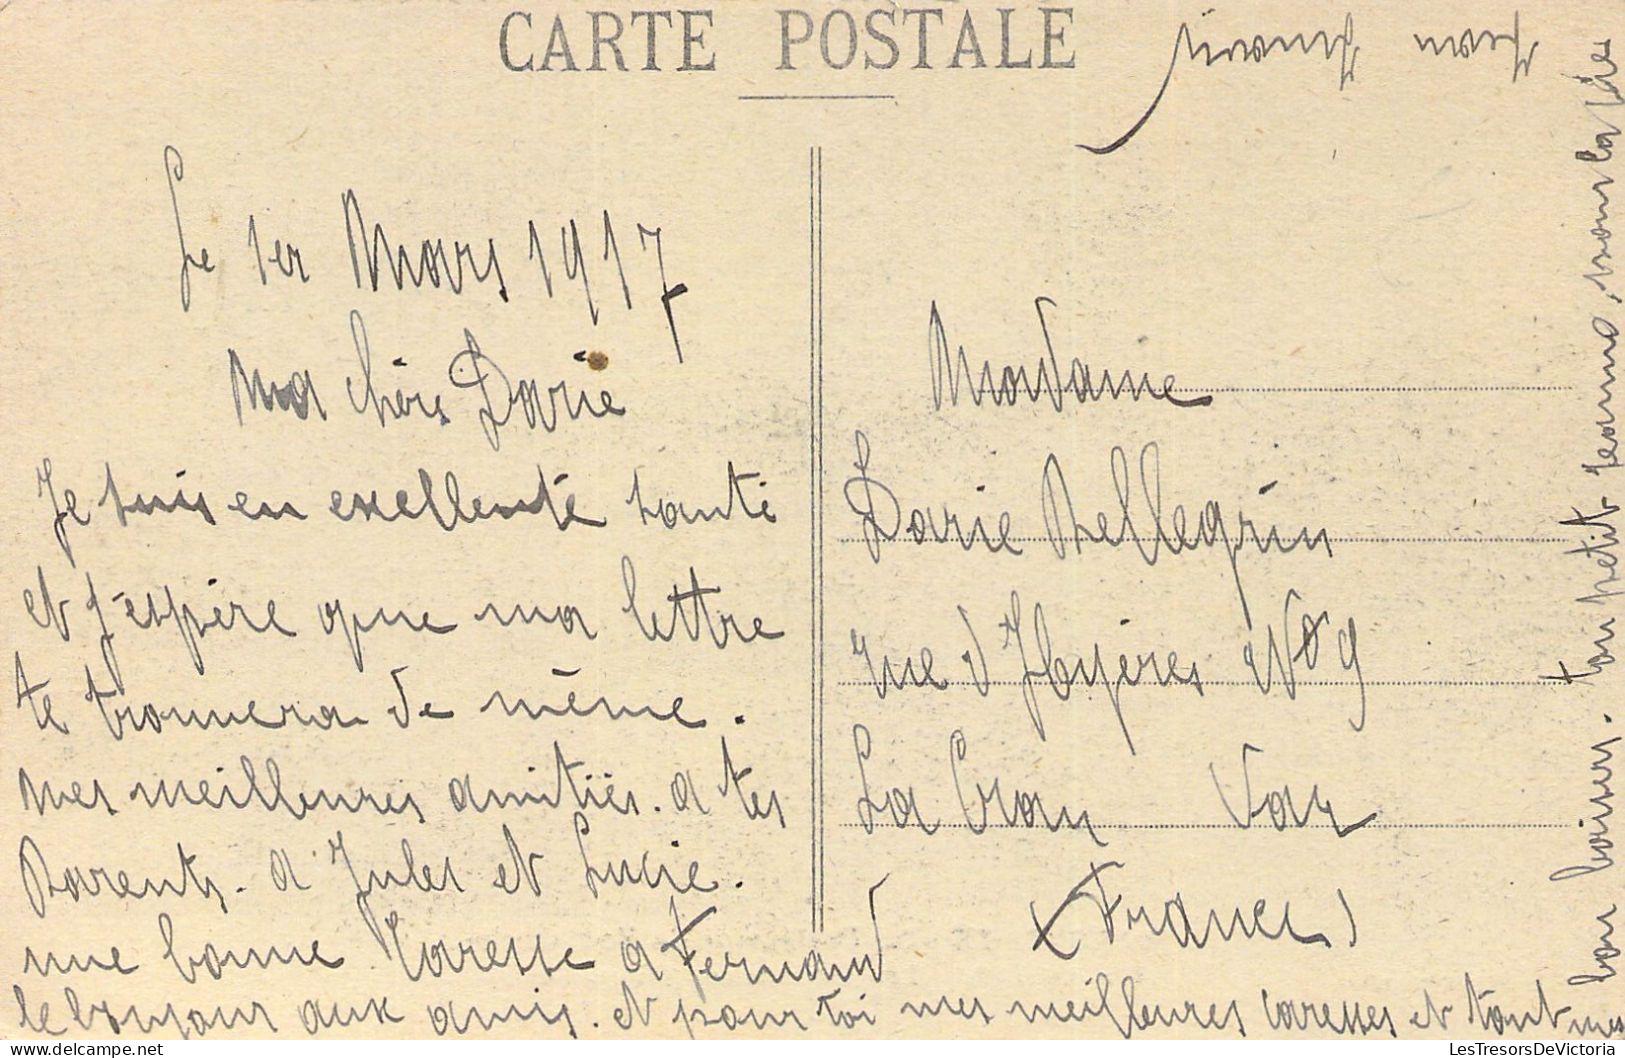 CARTE POSTALE
Le 1er Mars 1917
Ma chère Darie
Je suis en exellente santé
et j'espère que ma lettre
te trouvera de même.
mes meilleures amitiés. a tes
Parents. a Jules et Lucie.
une bonne Caresse a Fernand
le bonjour aux amis. et pour toi mes meilleures caresses et tout mes
bon baisers. ton petit homme, pour la vie
Jean
Madame
Darie Pellegrin
rue d'Hyères No 9
La Crau Var
(France)
LesTresorsDeVictoria